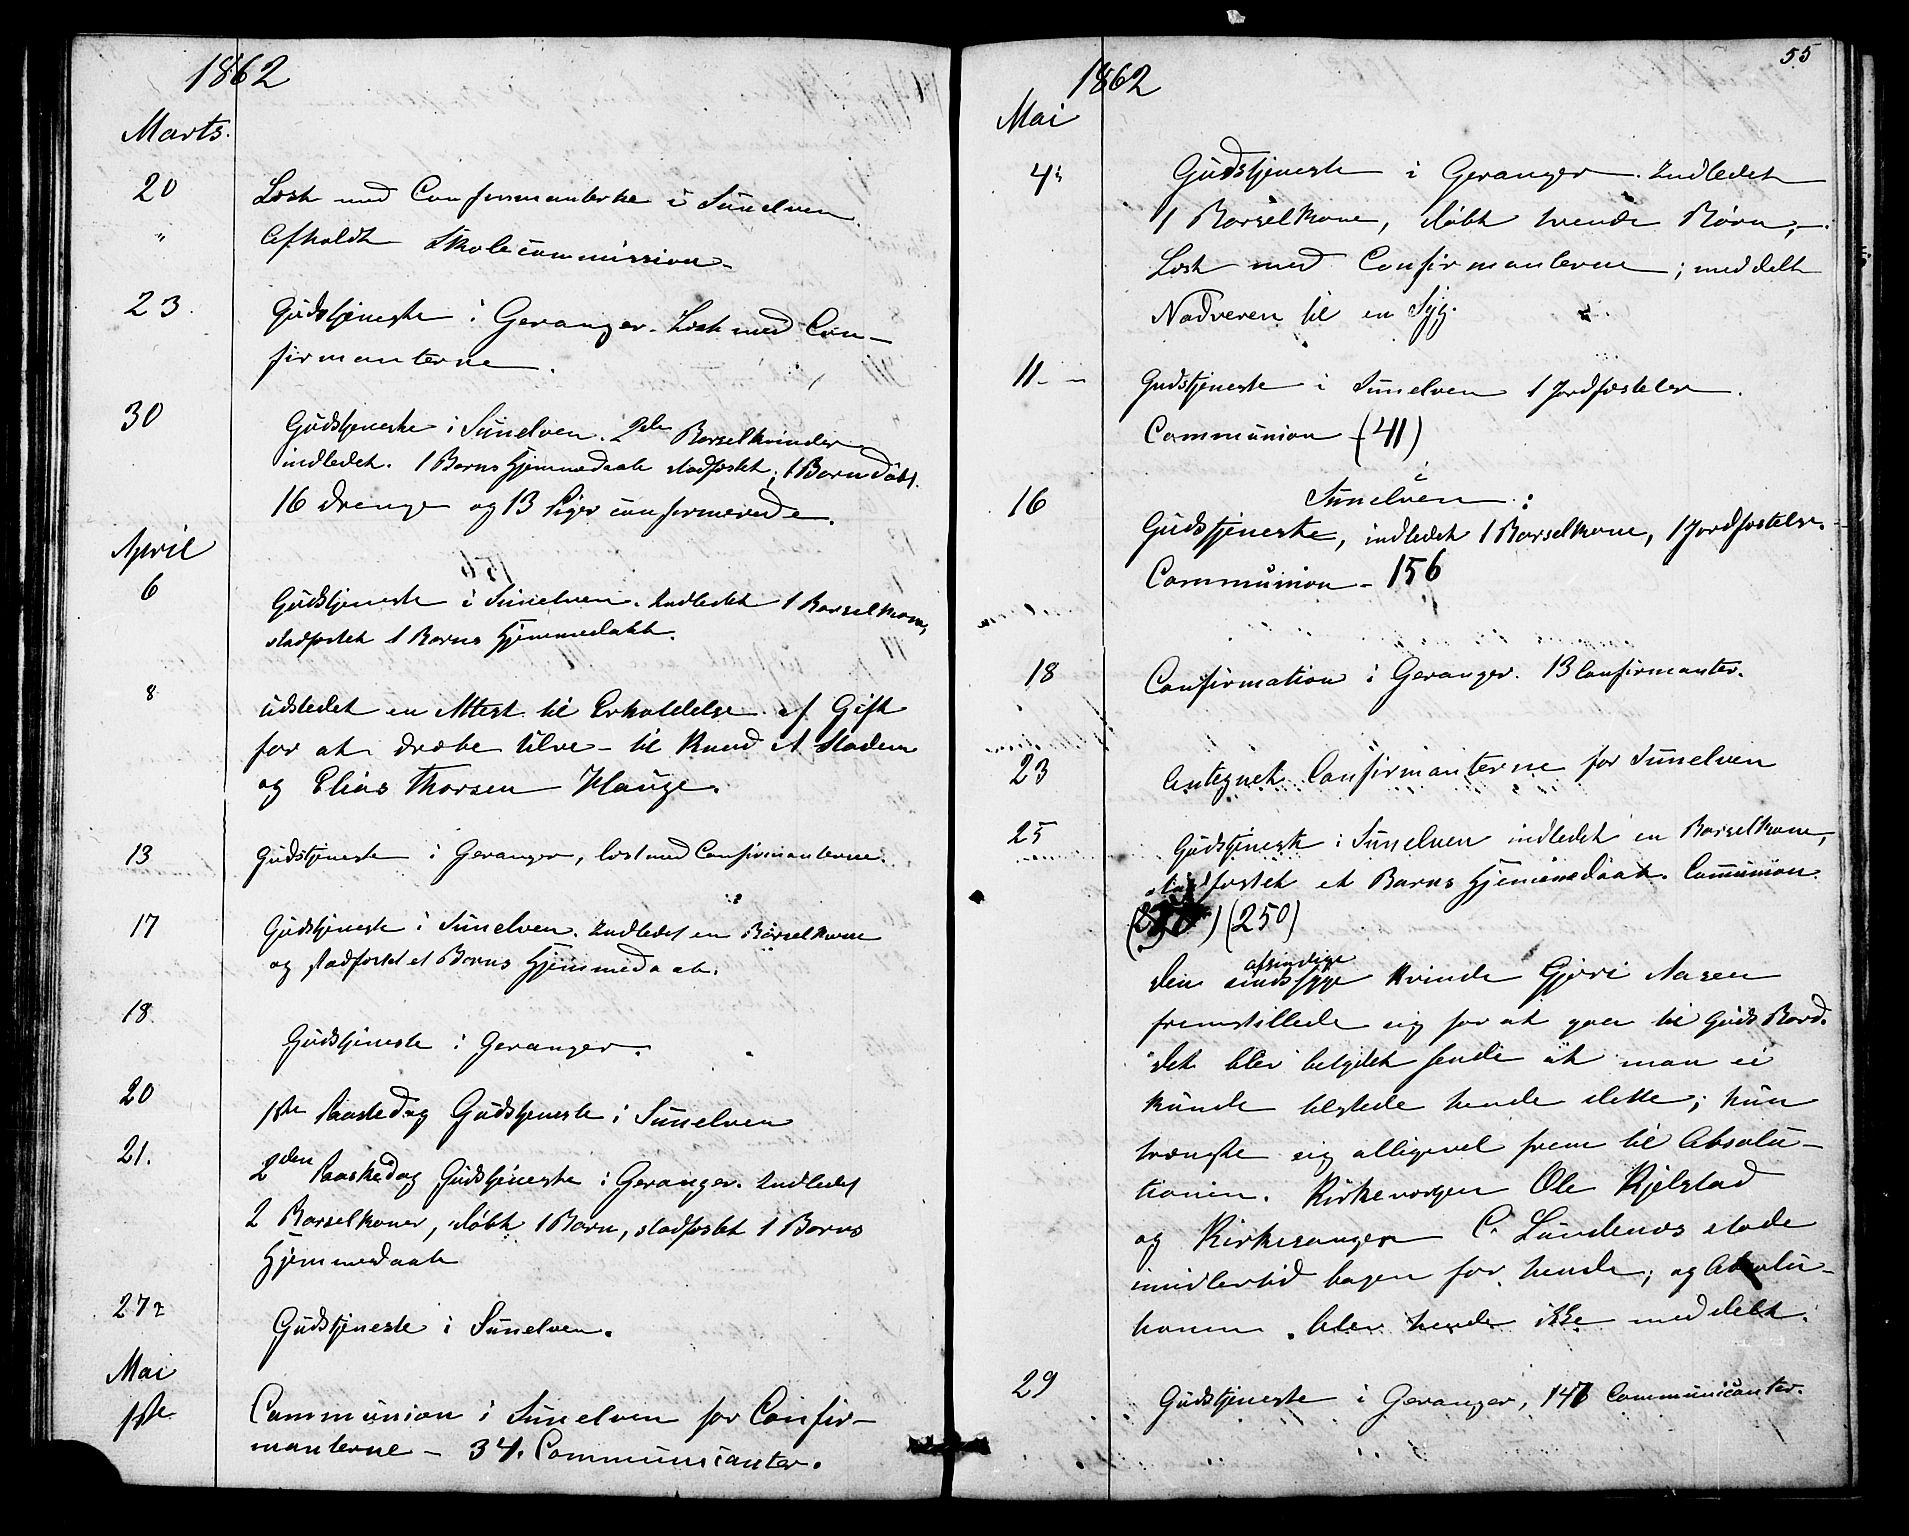 1862
Marts.
20 Læst med Confirmanterne i Sunelven.
" Afholdt Skolecommission.
23. Gudstjeneste i Geranger. Læst med Con-
firmanterne.
30 Gudstjeneste i Sunelven. 2de Barselkvinder
indledet. 1 Barns Hjemmedaab stadfæstet; 1 Barn døbt.
16 Drenge og 13 Piger confirmerede.
April
6 Gudstjeneste i Sunelven. Indledet 1 Barselkone,
stadfæstet 1 Barns Hjemmedaab.
8 Udstedet en Attest til Erholdelse af Gift
for at dræbe Ulve – til Knud A Staden
og Elias Thorsen Hauge.
13 Gudstjeneste i Geranger, læst med Confirmanterne.
17 Gudstjeneste i Sunelven. Indledet en Barselkone
og stadfæstet et Barns Hjemmedaab.
18. Gudstjeneste i Geranger.
20 1ste Paaskedag Gudstjeneste i Sunelven
21. 2den Paaskedag Gudstjeneste i Geranger. Indledet
2 Barselkoner, døbt 1 Barn, stadfæstet 1 Barns
Hjemmedaab
27 Gudstjeneste i Sunelven.
Mai
1ste Communion i Sunelven for Confir-
manterne – 34. Communicanter.
55
1862
Mai
4 Gudstjeneste i Geranger. Indledet
1 Barselkone, døbt tvende Børn,
Læst med Confirmanterne; meddelt
Nadveren til en Syg.
11 Gudstjeneste i Sunelven 1 Jordfæstelse.
Communion (41)
16 i Sunelven:
Gudstjeneste, indledet 1 Barselkone, 1 Jordfæstelse.
Communion – 156
18 Confirmation i Geranger. 13 Confirmanter.
23 Antegnet Confirmanterne for Sunelven
25 Gudstjeneste i Sunelven indledet en Barselkone,
stadfæstet et Barns Hjemmedaab. Communion
(250)
afsindige
Den sindssyge Kvinde Gjøri Aasen
fremstillede sig for at gaa til Guds Bord.
Det blev betydet hende at man ei
kunde tilstede hende dette; hun
trængte sig alligevel frem til Absolu-
tionen. Kirkeværgen Ole Kjelstad
og Kirkesanger C. Lundenes stode
imidlertid bagen for hende; og Absolu-
tionen blev hende ikke meddelt.
29 Gudstjeneste i Geranger, Communicanter.